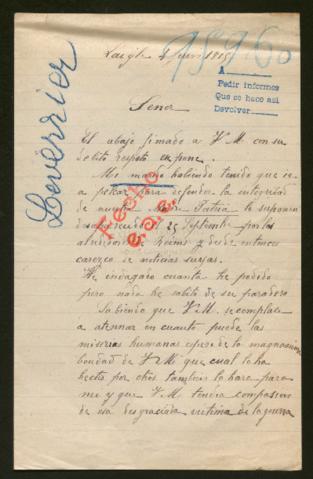 Laigle 4 Junio 1915
98960
Leverrier
A
Pedir informes
Que se hace así
Devolver
Señor
El abajo firmado a V M con su
debito respeto expone.
Mi marido habiendo tenido que ir
a pelear para defender la integridad
de nuestra Patria le suponen
desaparecido el 25 Septiembre por los
alrededores de Reims y desde entonces
carezco de noticias suyas.
He indagado cuanto he podido
pero nada he sabido de su paradero
Sabiendo que V.M. se complace
a atenuar en cuanto puede las
miserias humanas espero de la magnanima
bondad de V M que cual lo ha
hecho por otros tambien lo hara para
mi y que V.M tendra compasion
de esa desgraciada victima de la guerra
Fecho